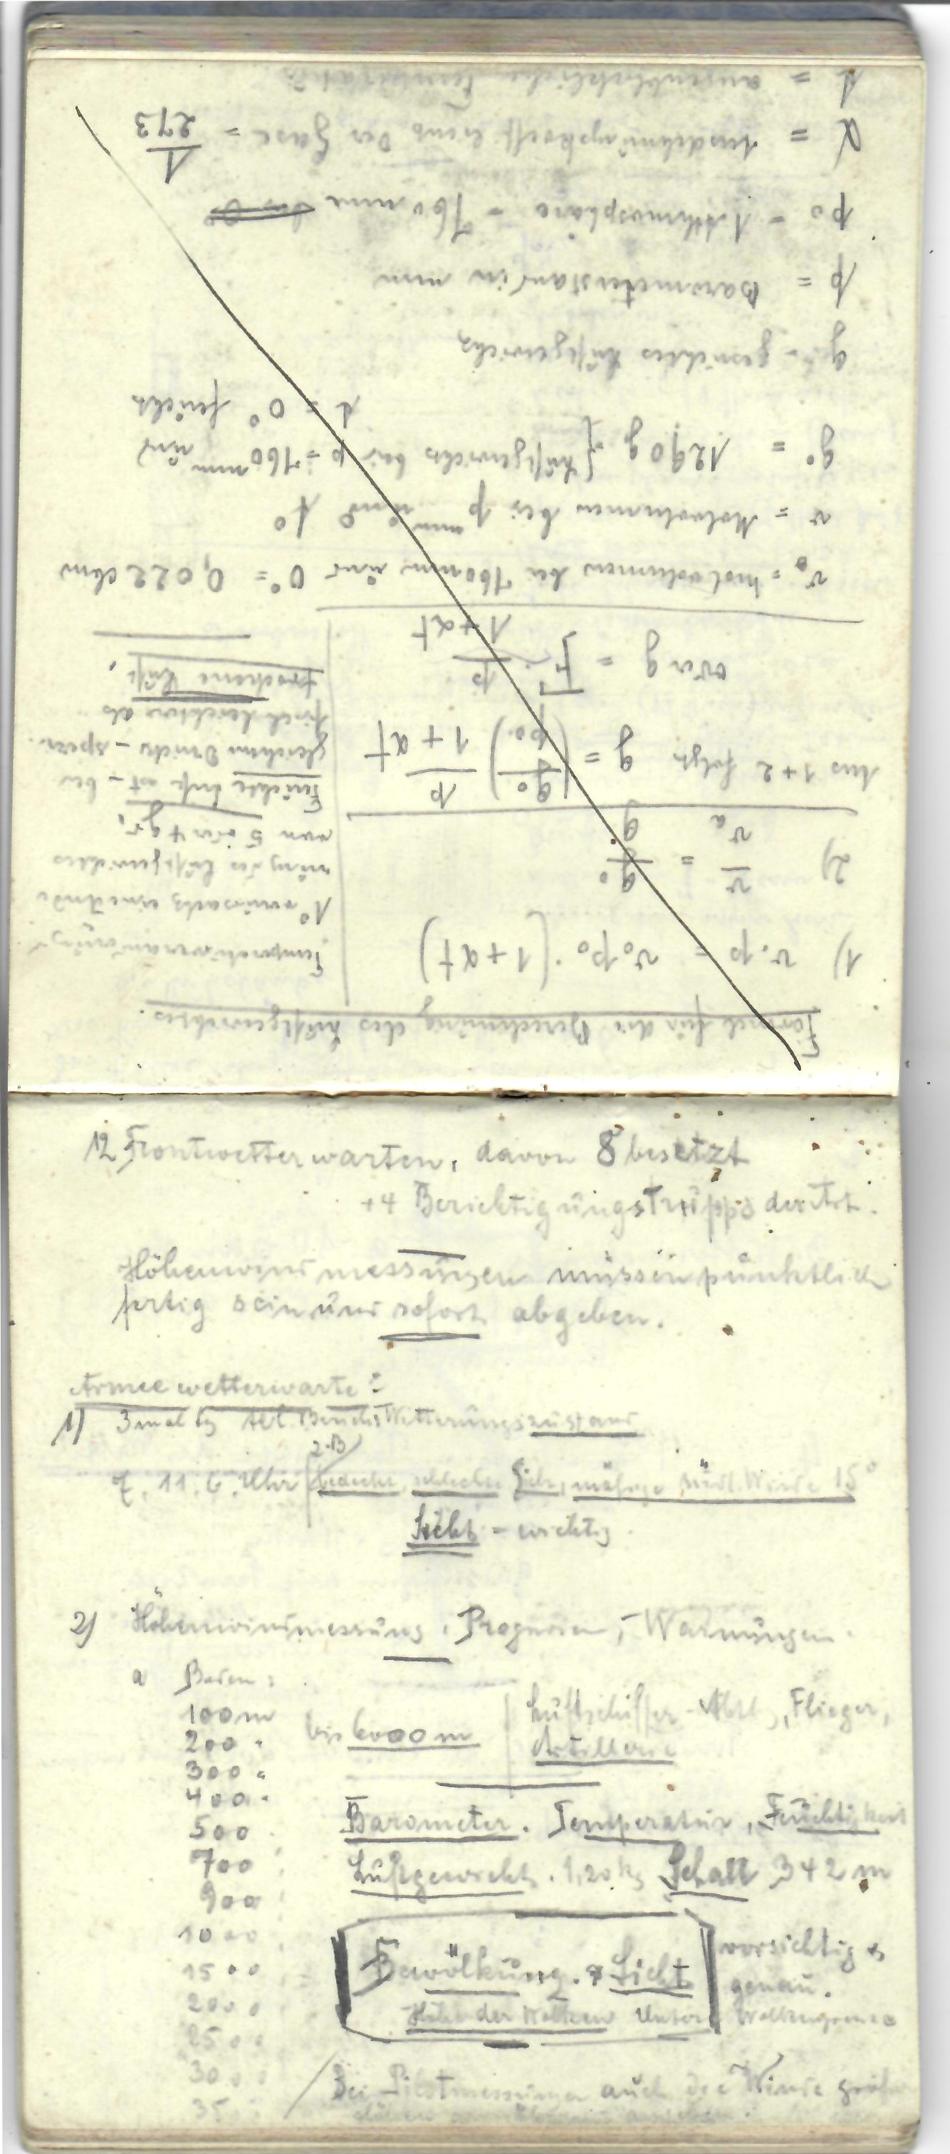 Formel für die Berechnung des Luftgewichtes.
1) v.p = v₀p₀ . (1 + αt)
2) v/v₀ = g₀/g
Aus 1+2 folgt g = (g₀/p₀) p/(1 + αt)
g = F . p/(1 + αt)
Temperaturveränderung
1° verursacht eine Ände
rung des Luftgewichtes
von 5 bis 4 gr.
Feuchte Luft ist - bei
gleichem Drucke - spez.
leichter als
trockene Luft.
v₀ = Molvolumen bei 760 mm und 0° = 0,022 cbm
v = Molvolumen bei p mm und t°
g° = 1290 g {Luftgewicht bei p = 760 mm und
t = 0° feucht
g = gesuchtes Luftgewicht
p = Barometerstand in mm
p₀ = 1 Athmosphäre = 760 mm
α = Ausdehnungskoeffizient der Gase = 1/273
t = augenblickliche Temperatur
12 Frontwetterwarten, davon 8 besetzt
+4 Berichtigungstrupps der Art.
Höhenwindmessungen müssen pünktlich
fertig sein und sofort abgeben.
Armeewetterwarte:
1) 3mal Wetterungszustand
z.B
7. 11. 6. Uhr bedeckt, schlechte Sicht, mäßige südl. Winde 15°
Sicht = wichtig.
2) Höhenwindmessung, Prognosen, Warnungen.
a Boden:
100 m
200 "
300 "
400 "
500
700
900
1000
1500
2000
2500
3000
35
bis 6000 m
Luftschiffer-Abtl, Flieger,
Artillerie
Barometer. Temperatur, Feuchtigkeit
Luftgewicht. 1,20 kg Schall 342 m
Bewölkung. & Sicht
Höhe der Wolken Untere Wolkengrenze
vorsichtig &
genau.
Bei Pilotmessungen auch die Winde